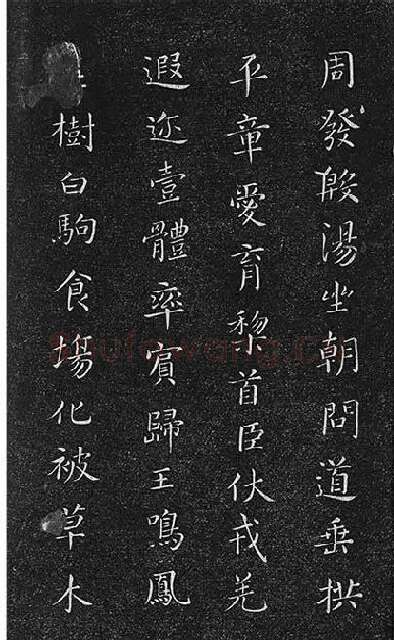 周發殷湯坐朝問道垂拱
平章愛育黎首臣伏戎羌
遐迩壹體率賓歸王鳴鳳
樹白駒食場化被草木